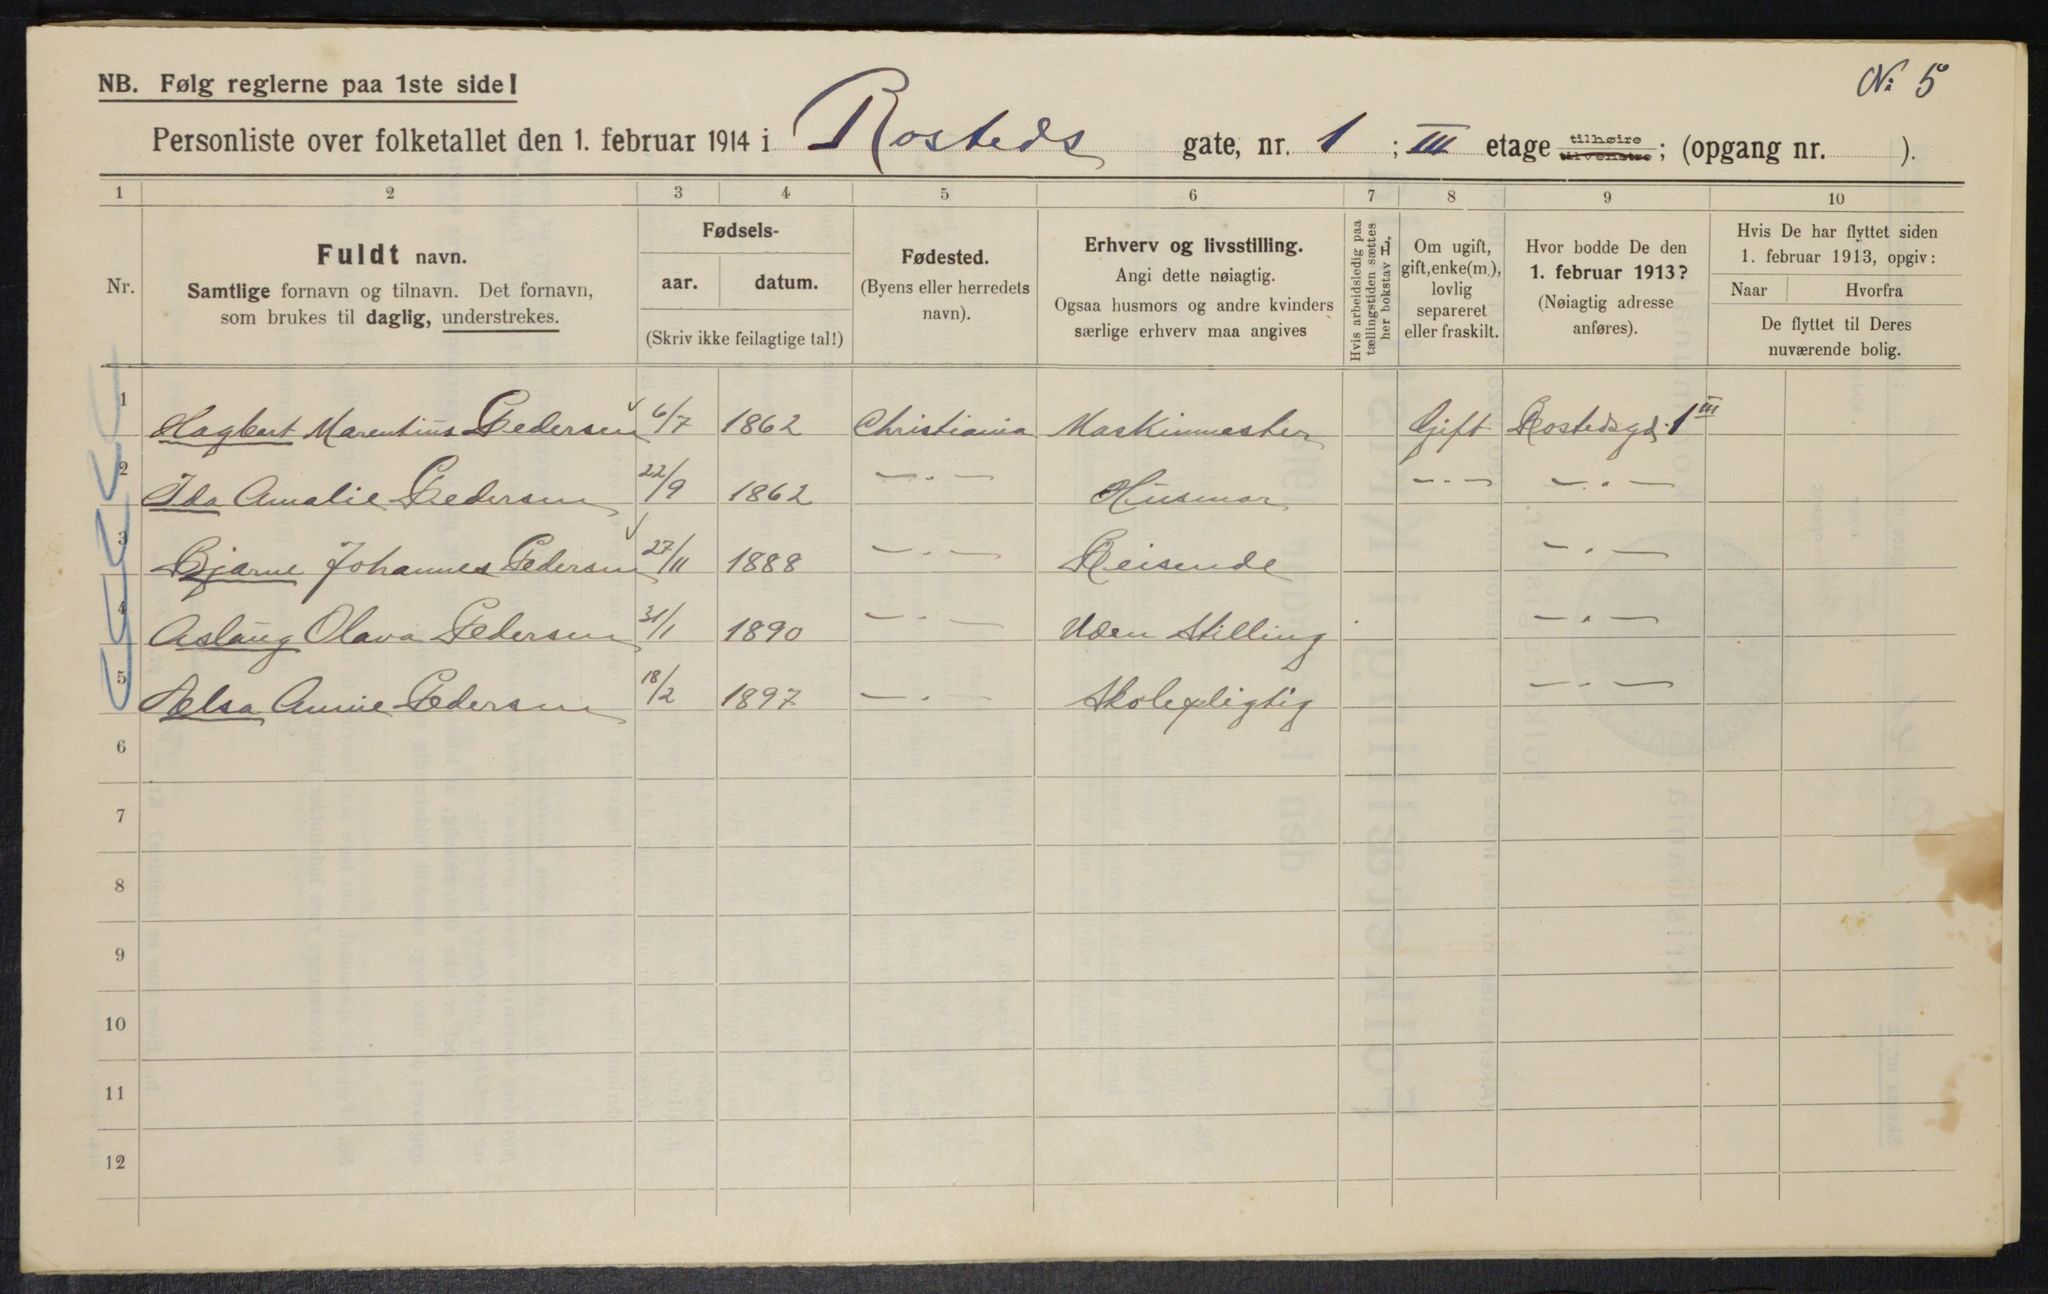 NB. Følg reglerne paa 1ste side!
№ 5
Personliste over folketallet den 1. februar 1914 i Rosteds gate, nr. 1 ; III etage tilhøire tilvenstre ; (opgang nr. ).
1 2 3 4 5 6 7 8 9 10
Nr.
Fuldt navn.
Samtlige fornavn og tilnavn. Det fornavn,
som brukes til daglig, understrekes.
Fødsels-
aar. datum.
(Skriv ikke feilagtige tal!)
Fødested.
(Byens eller herredets
navn).
Erhverv og livsstilling.
Angi dette nøiagtig.
Ogsaa husmors og andre kvinders
særlige erhverv maa angives
Hvis arbeidsledig paa
tællingstiden sættes
her bokstav H.
Om ugift,
gift, enke(m.),
lovlig
separeret
eller fraskilt.
Hvor bodde De den
1. februar 1913?
(Nøiagtig adresse
anføres).
Hvis De har flyttet siden
1. februar 1913, opgiv:
Naar Hvorfra
De flyttet til Deres
nuværende bolig.
1 Hagbert Marentius Pedersen 6/7 1862 Christiania Maskinmester Gift Rostedsgd. 1 III
2 Ida Amalie Pedersen 22/9 1862 — " — Husmor — " — — " —
3 Bjarne Johannes Pedersen 27/11 1888 — " — Reisende — " —
4 Aslaug Olava Pedersen 31/1 1890 — " — Uden Stilling — " —
5 Aelsa Annie Pedersen 18/2 1897 — " — Skolepligtig — " —
6
7
8
9
10
11
12